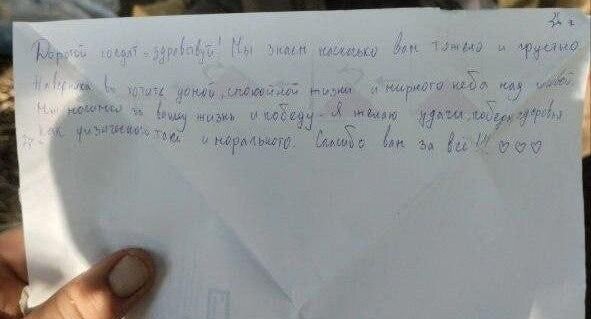 Дорогой солдат - здравствуй! Мы знаем насколько вам тяжело и грустно
Наверняка вы хотите домой, спокойной жизни и мирного неба над головой
Мы молимся за вашу жизнь и победу. Я желаю удачи, победы, здоровья
как физического так и морального. Спасибо вам за всё!!! ♡♡♡